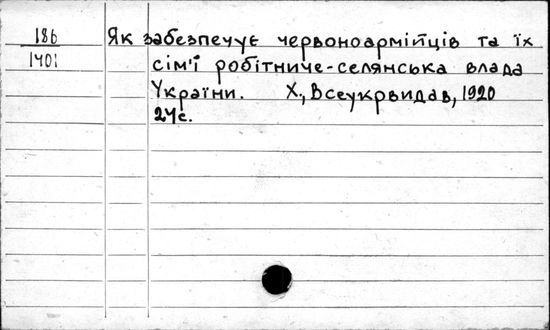 186
1401
Як забезпечує червоноармійців та їх
сім'ї робітниче-селянська влада
України. Х., Всеукрвидав, 1920
24с.